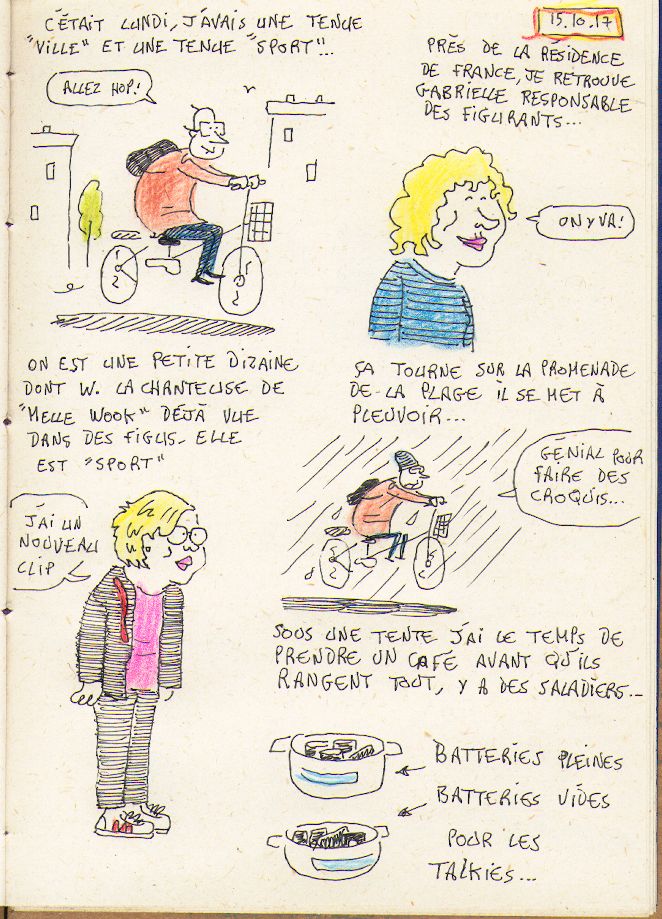 C'ÉTAIT LUNDI, J'AVAIS UNE TENUE
"VILLE" ET UNE TENUE "SPORT"...
ALLEZ HOP!
15.10.17
PRÈS DE LA RÉSIDENCE
DE FRANCE, JE RETROUVE
GABRIELLE RESPONSABLE
DES FIGURANTS...
ON Y VA!
ON EST UNE PETITE DIZAINE
DONT W. LA CHANTEUSE DE
"MELLE WOOK" DÉJÀ VUE
DANS DES FIGUS_ ELLE
EST "SPORT"
J'AI UN
NOUVEAU
CLIP
ÇA TOURNE SUR LA PROMENADE
DE LA PLAGE IL SE MET À
PLEUVOIR...
GÉNIAL POUR
FAIRE DES
CROQUIS...
SOUS UNE TENTE J'AI LE TEMPS DE
PRENDRE UN CAFÉ AVANT QU'ILS
RANGENT TOUT, Y A DES SALADIERS...
BATTERIES PLEINES
BATTERIES VIDES
POUR LES
TALKIES...